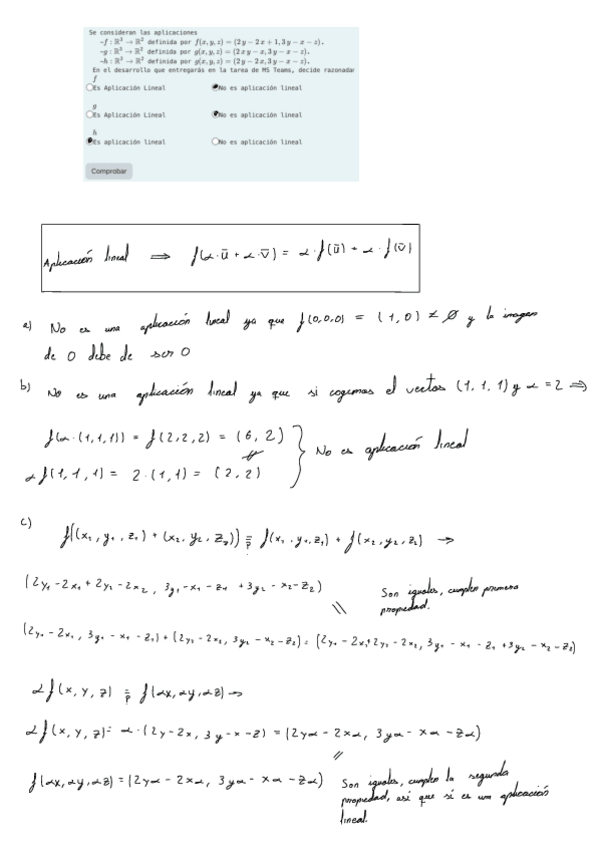 Se consideran las aplicaciones
-f : ℝ³ → ℝ² definida por f(x, y, z) = (2y − 2x + 1, 3y − x − z).
-g : ℝ³ → ℝ² definida por g(x, y, z) = (2xy − x, 3y − x − z).
-h : ℝ³ → ℝ² definida por g(x, y, z) = (2y − 2x, 3y − x − z).
En el desarrollo que entregarás en la tarea de MS Teams, decide razonadar
f
Es Aplicación Lineal No es aplicación lineal
g
Es Aplicación Lineal No es aplicación lineal
h
Es aplicación lineal No es aplicación lineal
Comprobar
Aplicación lineal ⟹ f(α·ū + α·v̄) = α·f(ū) + α·f(v̄)
a) No es una aplicación lineal ya que f(0,0,0) = (1,0) ≠ ∅ y la imagen
de 0 debe de ser 0
b) No es una aplicación lineal ya que si cogemos el vector (1,1,1) y α = 2 ⟹
f(α·(1,1,1)) = f(2,2,2) = (6,2)
No es aplicación lineal
αf(1,1,1) = 2·(1,1) = (2,2)
c)
f((x₁, y₁, z₁) + (x₂, y₂, z₂)) =? f(x₁, y₁, z₁) + f(x₂, y₂, z₂) →
(2y₁ − 2x₁ + 2y₂ − 2x₂, 3y₁ − x₁ − z₁ + 3y₂ − x₂ − z₂)
Son iguales, cumplen primera
propiedad.
(2y₁ − 2x₁, 3y₁ − x₁ − z₁) + (2y₂ − 2x₂, 3y₂ − x₂ − z₂) = (2y₁ − 2x₁ + 2y₂ − 2x₂, 3y₁ − x₁ − z₁ + 3y₂ − x₂ − z₂)
αf(x, y, z) =? f(αx, αy, αz) →
αf(x, y, z) = α·(2y − 2x, 3y − x − z) = (2yα − 2xα, 3yα − xα − zα)
f(αx, αy, αz) = (2yα − 2xα, 3yα − xα − zα)
Son iguales, cumplen la segunda
propiedad, así que si es una aplicación
lineal.